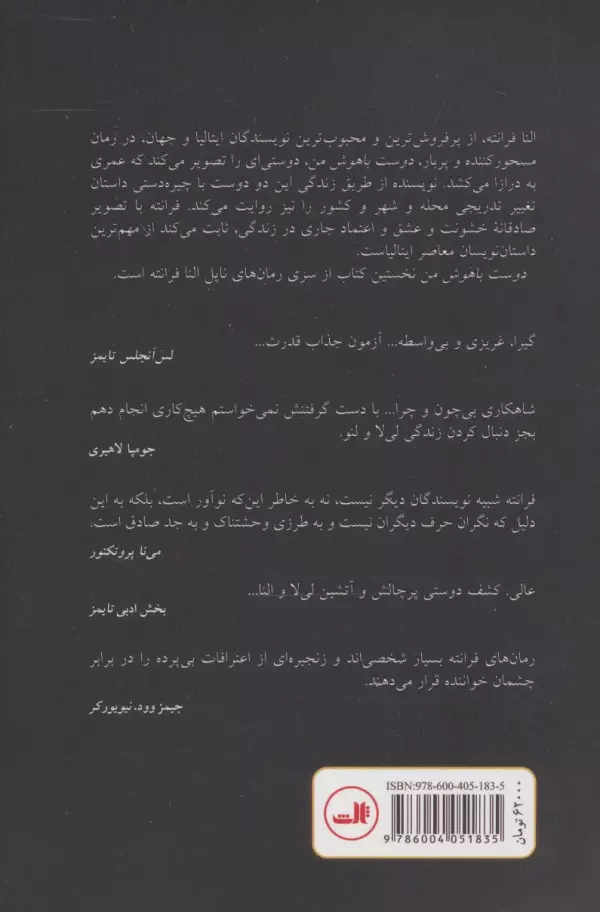 النا فرانته، از پرفروش‌ترین و محبوب‌ترین نویسندگان ایتالیا و جهان، در رمان
مسحورکننده و پربار، دوست باهوش من، دوستی‌ای را تصویر می‌کند که عمری
به درازا می‌کشد. نویسنده از طریق زندگی این دو دوست با چیره‌دستی داستان
تغییر تدریجی محله و شهر و کشور را نیز روایت می‌کند. فرانته با تصویر
صادقانهٔ خشونت و عشق و اعتماد جاری در زندگی، ثابت می‌کند از مهم‌ترین
داستان‌نویسان معاصر ایتالیاست.
دوست باهوش من نخستین کتاب از سری رمان‌های ناپل النا فرانته است.
گیرا، غریزی و بی‌واسطه... آزمون جذاب قدرت...
لس‌آنجلس تایمز
شاهکاری بی‌چون و چرا... با دست گرفتنش نمی‌خواستم هیچ‌کاری انجام دهم
بجز دنبال کردن زندگی لی‌لا و لنو.
جومپا لاهیری
فرانته شبیه نویسندگان دیگر نیست، نه به خاطر این‌که نوآور است، بلکه به این
دلیل که نگران حرف دیگران نیست و به طرزی وحشتناک و به جد صادق است.
می‌نا پروتکتور
عالی. کشف دوستی پرچالش و آتشین لی‌لا و النا...
بخش ادبی تایمز
رمان‌های فرانته بسیار شخصی‌اند و زنجیره‌ای از اعترافات بی‌پرده را در برابر
چشمان خواننده قرار می‌دهند.
جیمز وود، نیویورکر
ISBN:978-600-405-183-5
9 786004 051835
۶۲۰۰۰ تومان
ثالث